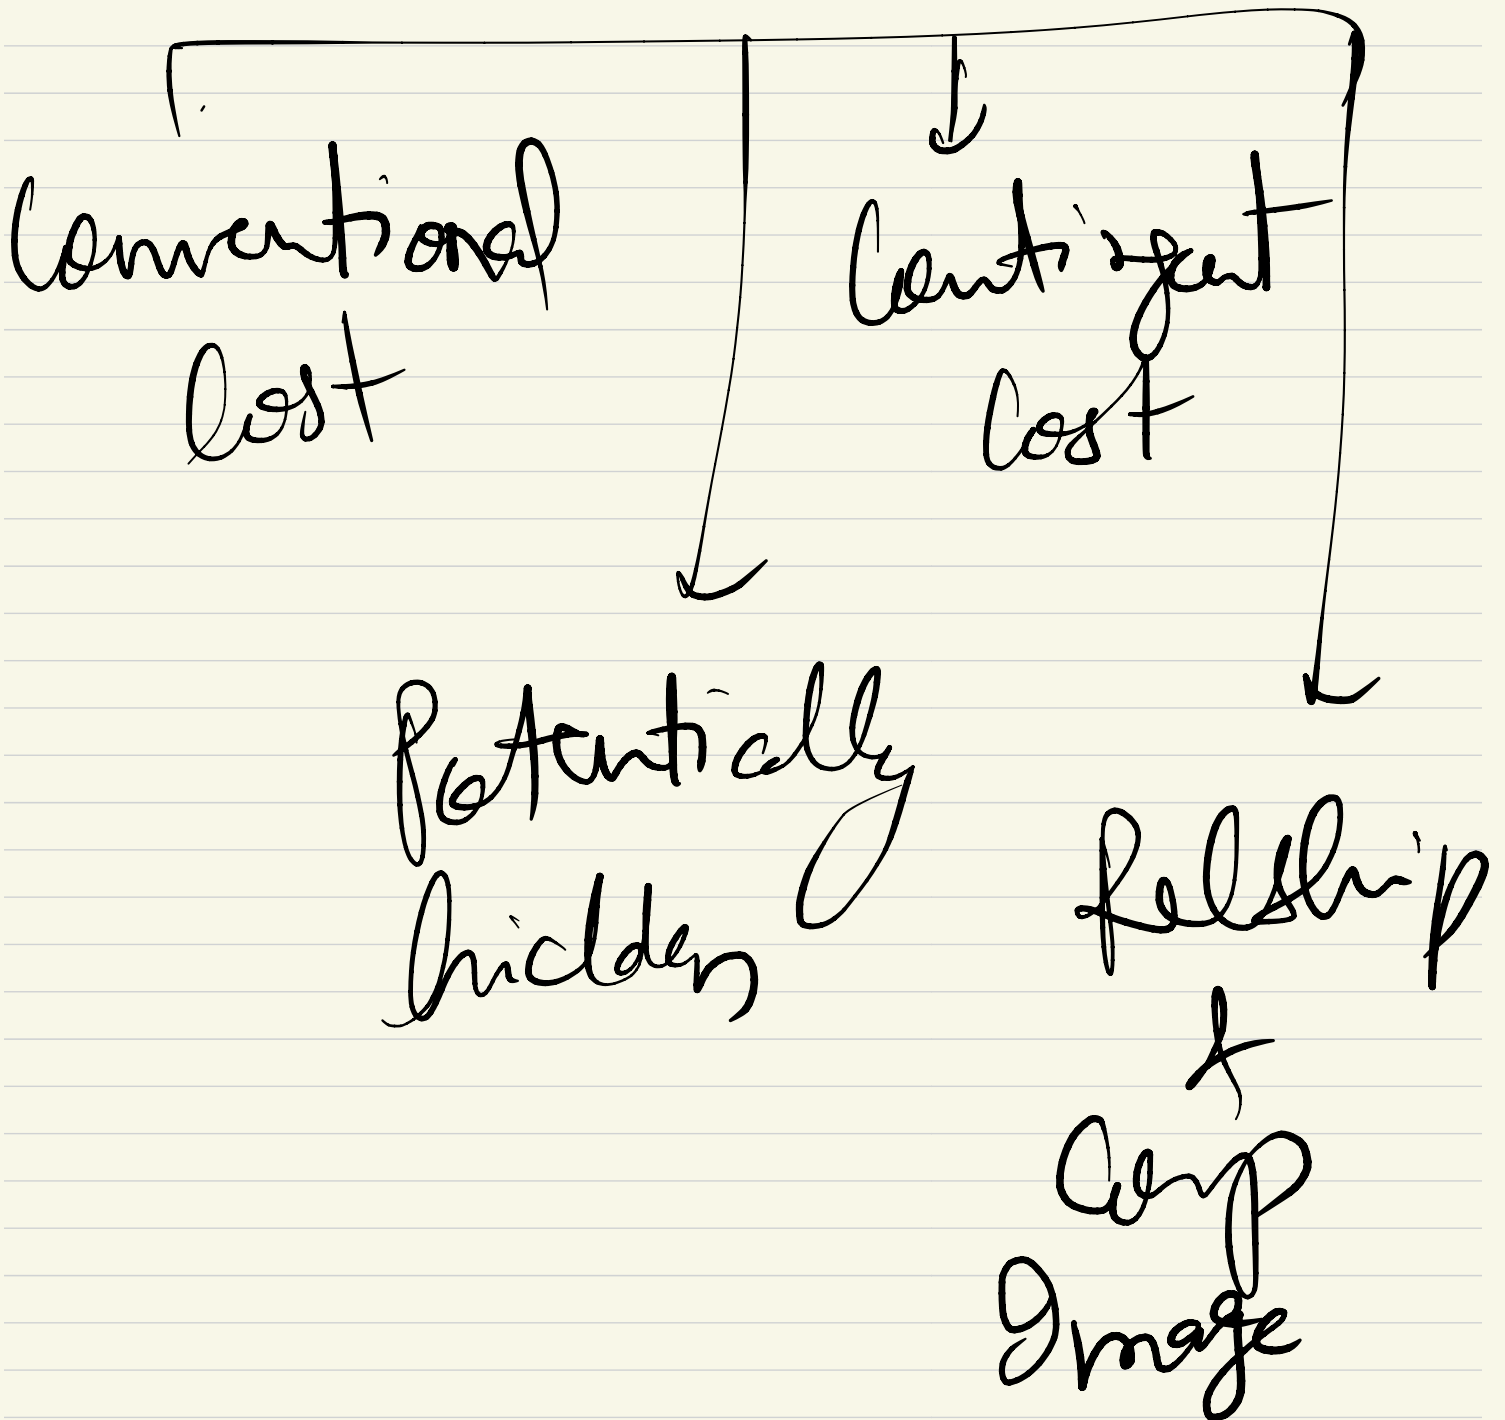 Conventional
Cost
Contingent
Cost
Potentially
hidden
Relship
&
Comp
Image